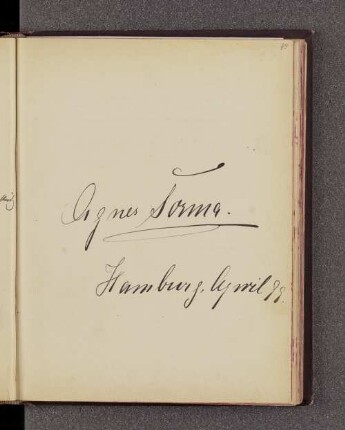 Agnes Sorma.
Hamburg. April 99.